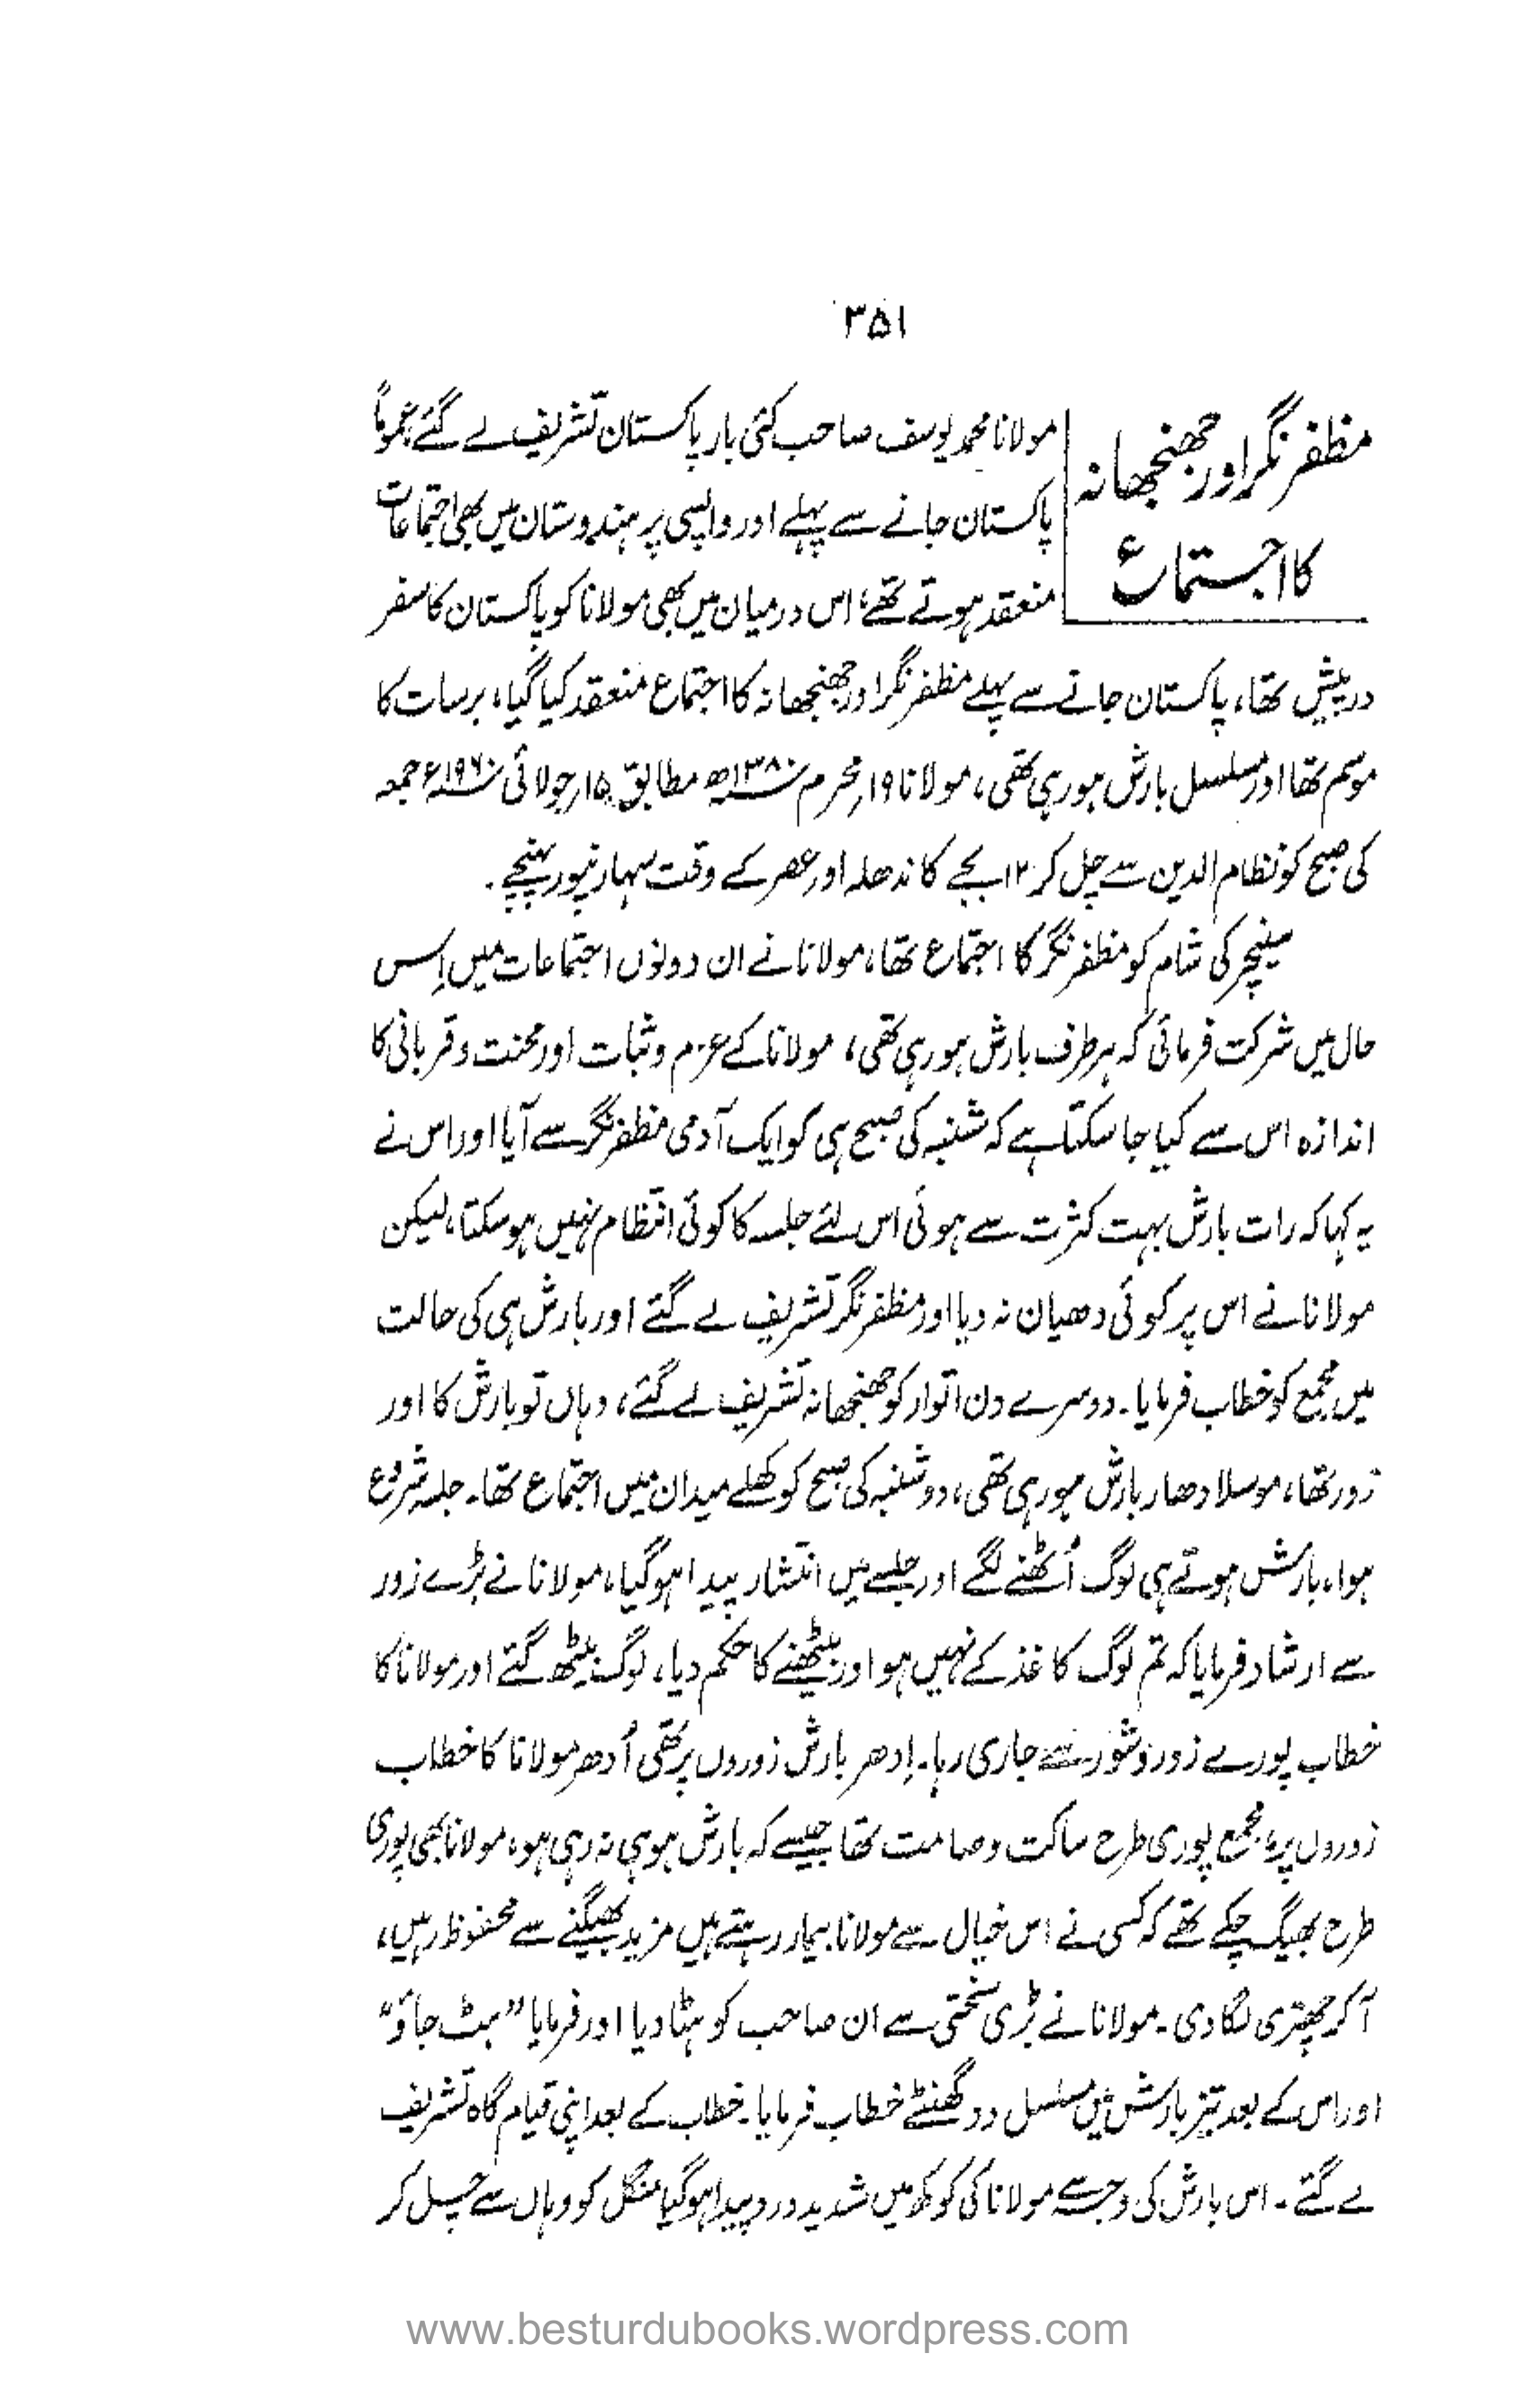 ۳۵۱
مظفر نگر اور جھنجھانہ
کا اجتماع
مولانا محمد یوسف صاحب کئی بار پاکستان تشریف لے گئے عموماً
پاکستان جانے سے پہلے اور واپسی پر ہندوستان میں بھی اجتماعات
منعقد ہوتے تھے، اس درمیان میں بھی مولانا کو پاکستان کا سفر
درپیش تھا، پاکستان جانے سے پہلے مظفر نگر اور جھنجھانہ کا اجتماع منعقد کیا گیا، برسات کا
موسم تھا اور مسلسل بارش ہورہی تھی، مولانا ۱۹ محرم ۱۳۸۰ھ مطابق ۱۵ جولائی ۱۹۶۰ء جمعہ
کی صبح کو نظام الدین سے چل کر ۱۲ بجے کاندھلہ اور عصر کے وقت سہارنپور پہنچے۔
سنیچر کی شام کو مظفر نگر کا اجتماع تھا، مولانا نے ان دونوں اجتماعات میں اِس
حال میں شرکت فرمائی کہ ہر طرف بارش ہورہی تھی، مولانا کے عزم و ثبات اور محنت و قربانی کا
اندازہ اس سے کیا جا سکتا ہے کہ شنبہ کی صبح ہی کو ایک آدمی مظفر نگر سے آیا اور اس نے
یہ کہا کہ رات بارش بہت کثرت سے ہوئی اس لئے جلسہ کا کوئی انتظام نہیں ہوسکتا، لیکن
مولانا نے اس پر کوئی دھیان نہ دیا اور مظفر نگر تشریف لے گئے اور بارش ہی کی حالت
میں مجمع کو خطاب فرمایا۔ دوسرے دن اتوار کو جھنجھانہ تشریف لے گئے، وہاں تو بارش کا اور
زور تھا، موسلا دھار بارش ہورہی تھی، دوشنبہ کی صبح کو کھلے میدان میں اجتماع تھا۔ جلسہ شروع
ہوا، بارش ہوتے ہی لوگ اُٹھنے لگے اور جلسے میں انتشار پیدا ہوگیا، مولانا نے بڑے زور
سے ارشاد فرمایا کہ تم لوگ کاغذ کے نہیں ہو اور بیٹھنے کا حکم دیا، لوگ بیٹھ گئے اور مولانا کا
خطاب پورے زور و شور سے جاری رہا۔ اِدھر بارش زوروں پر تھی اُدھر مولانا کا خطاب
زوروں پر، مجمع پوری طرح ساکت و صامت تھا جیسے کہ بارش ہو ہی نہ رہی ہو، مولانا بھی پوری
طرح بھیگ چکے تھے کہ کسی نے اس خیال سے مولانا بیمار رہتے ہیں مزید بھیگنے سے محفوظ رہیں،
آکر چھتری لگا دی۔ مولانا نے بڑی سختی سے ان صاحب کو ہٹا دیا اور فرمایا ”ہٹ جاؤ“
اور اس کے بعد تیز بارش میں مسلسل دو گھنٹے خطاب فرمایا۔ خطاب کے بعد اپنی قیام گاہ تشریف
لے گئے۔ اس بارش کی وجہ سے مولانا کی کوکھ میں شدید درد پیدا ہوگیا منگل کو وہاں سے چل کر
www.besturdubooks.wordpress.com